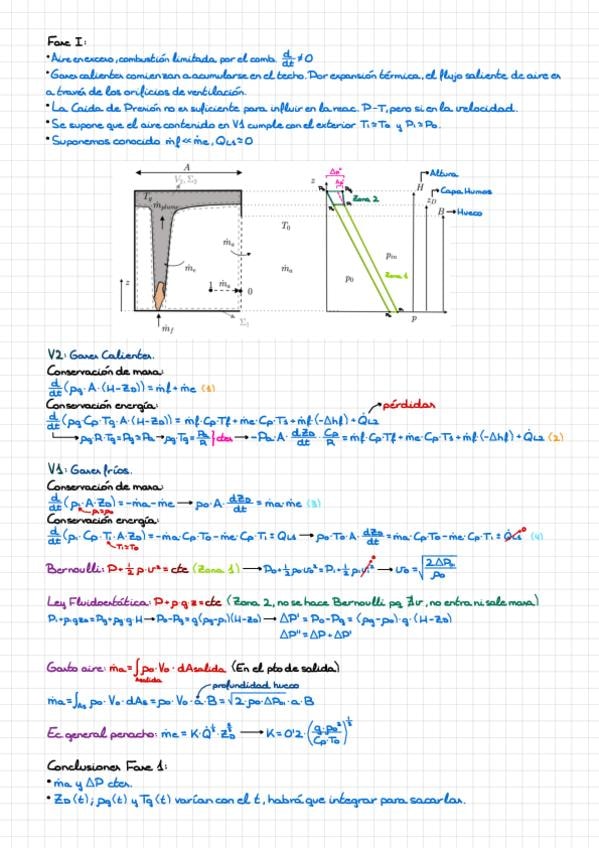 Fase I:
• Aire en exceso, combustión limitada por el comb. d/dt ≠ 0
• Gases calientes comienzan a acumularse en el techo. Por expansión térmica, el flujo saliente de aire es
a través de los orificios de ventilación.
• La Caida de Presión no es suficiente para influir en la reac. P-T, pero si en la velocidad.
• Se supone que el aire contenido en V1 cumple con el exterior T₁=T₀ y P₁=P₀.
• Suponemos conocido ṁf ≪ ṁe, Q̇Ls=0
A
V₂, Σ₂
T_g
ṁ_plume
ṁ_e
ṁ_a
ṁ_a
0
z
ṁ_f
Σ₁
T₀
ṁ_a
z
Zona 2
Altura
H
Capa Humos
z_D
B → Hueco
p₀
p_in
Zona 1
p
V2: Gases Calientes.
Conservación de masa:
d/dt (ρg·A·(H-Z_D)) = ṁf + ṁe (1)
Conservación energía:
pérdidas
d/dt (ρg Cp·Tg·A·(H-Z_D)) = ṁf·Cp·Tf + ṁe·Cp·Ts + ṁf·(-Δhf) + Q̇L2
(2)
V1: Gases fríos.
Conservación de masa:
d/dt (ρ₁·A·Z_D) = -ṁa-ṁe → ρ₀·A·dZ_D/dt = ṁa·ṁe (3)
ρ₁=ρ₀
Conservación energía:
d/dt (ρ₁·Cp·T₁·A·Z_D) = -ṁa·Cp·T₀-ṁe·Cp·T₁ ± QLs → ρ₀·T₀·A·dZ_D/dt = ṁa·CpT₀-ṁe·Cp·T₁ ± Q̇Ls (4)
T₁=T₀
Bernoulli: P+½ρ·v² = cte (Zona 1) → P₀+½ρ₀v₀² = P₁+½ρ₁v₁² → v₀ = √(2ΔP/ρ₀)
Ley Fluidostática: P+ρ·g·z=cte (Zona 2, no se hace Bernoulli pq ∄v, no entra ni sale masa)
P₁+ρ₁gz₀=Pg+ρg·g·H → P₀-Pg=g(ρg-ρ₁)(H-Z_D) → ΔP' = P₀-Pg = (ρg-ρ₀)·g·(H-Z_D)
ΔP'' = ΔP+ΔP'
Gasto aire: ṁa=∫ρ₀·V₀·dAsalida (En el pto de salida)
Asalida
profundidad hueco
ṁa=∫ρ₀·V₀·dAs = ρ₀·V₀·a·B = √(2·ρ₀·ΔP)·a·B
Ec general penacho: ṁe = K·Q̇^⅓·Z_D^(5/3) → K=0'2·(g·ρ₀²/(Cp·T₀))^⅓
Conclusiones Fase 1:
• ṁa y ΔP ctes.
• Z_D(t); ρg(t) y Tg(t) varían con el t, habrá que integrar para sacarlas.